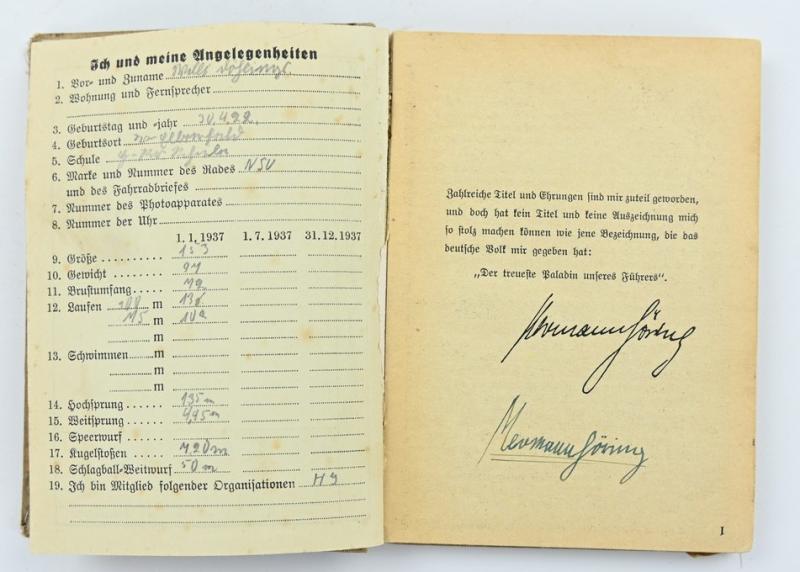 Ich und meine Angelegenheiten
1. Vor- und Zuname Willi
2. Wohnung und Fernsprecher
3. Geburtstag und -jahr 30.4.22.
4. Geburtsort W-Elberfeld
5. Schule
6. Marke und Nummer des Rades NSU
und des Fahrradbriefes
7. Nummer des Photoapparates
8. Nummer der Uhr
1. 1. 1937 1. 7. 1937 31. 12. 1937
9. Größe 153
10. Gewicht
11. Brustumfang
12. Laufen m
m
m
13. Schwimmen m
m
m
14. Hochsprung 135 m
15. Weitsprung 4,45 m
16. Speerwurf
17. Kugelstoßen 7,20 m
18. Schlagball-Weitwurf 50 m
19. Ich bin Mitglied folgender Organisationen HJ
Zahlreiche Titel und Ehrungen sind mir zuteil geworden,
und doch hat kein Titel und keine Auszeichnung mich
so stolz machen können wie jene Bezeichnung, die das
deutsche Volk mir gegeben hat:
„Der treueste Paladin unseres Führers“.
Hermann Göring
Hermann Göring
I